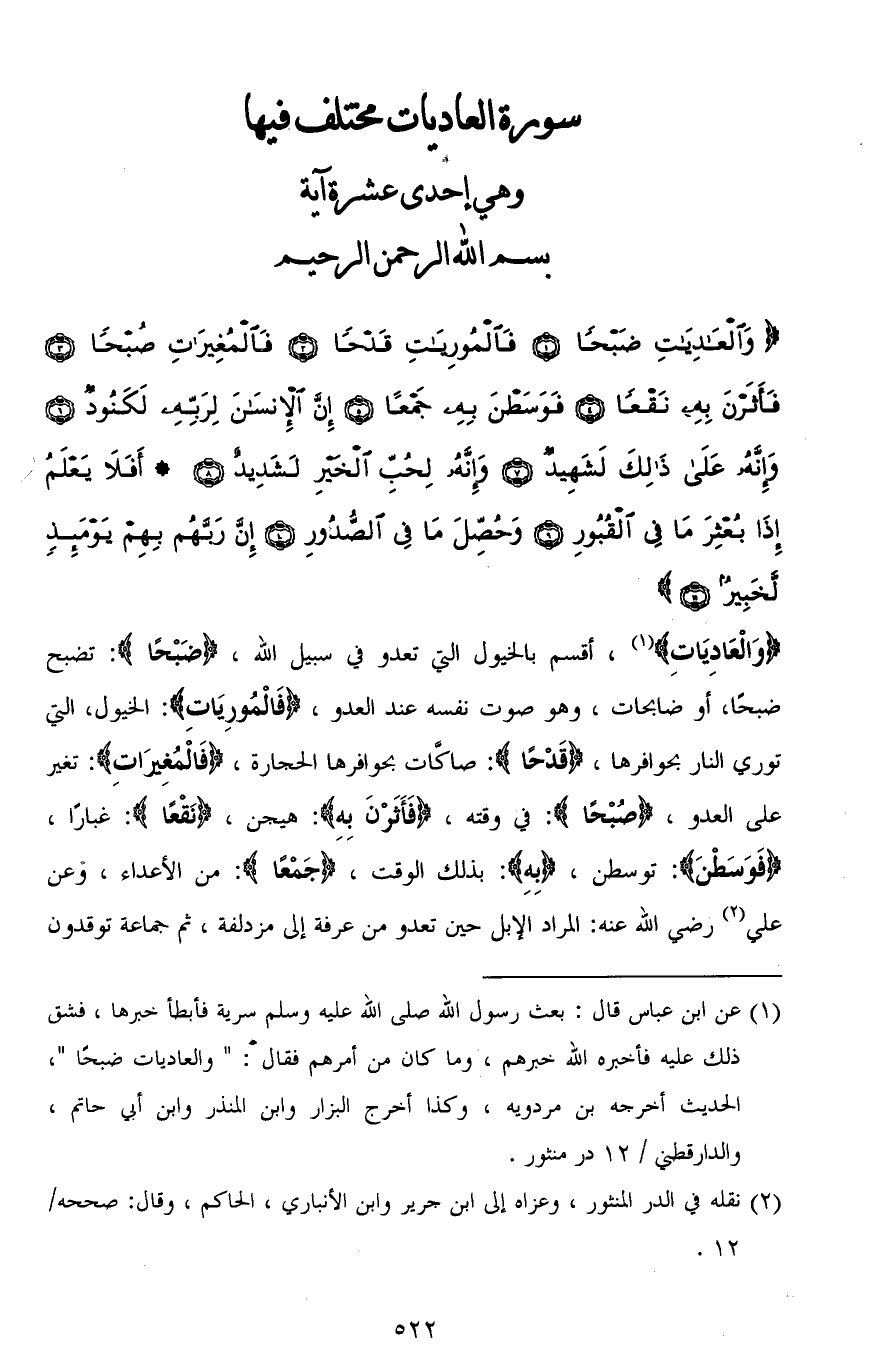 سورة العاديات مختلف فيها
وهي إحدى عشرة آية
بسم الله الرحمن الرحيم
﴿ وَٱلْعَٰدِيَٰتِ ضَبْحًا ١ فَٱلْمُورِيَٰتِ قَدْحًا ٢ فَٱلْمُغِيرَٰتِ صُبْحًا ٣
فَأَثَرْنَ بِهِۦ نَقْعًا ٤ فَوَسَطْنَ بِهِۦ جَمْعًا ٥ إِنَّ ٱلْإِنسَٰنَ لِرَبِّهِۦ لَكَنُودٌ ٦
وَإِنَّهُۥ عَلَىٰ ذَٰلِكَ لَشَهِيدٌ ٧ وَإِنَّهُۥ لِحُبِّ ٱلْخَيْرِ لَشَدِيدٌ ٨ * أَفَلَا يَعْلَمُ
إِذَا بُعْثِرَ مَا فِى ٱلْقُبُورِ ٩ وَحُصِّلَ مَا فِى ٱلصُّدُورِ ١٠ إِنَّ رَبَّهُم بِهِمْ يَوْمَئِذٍ
لَّخَبِيرٌ ١١ ﴾
﴿وَالْعَادِيَاتِ﴾(١) ، أقسم بالخيول التي تعدو في سبيل الله ، ﴿ضَبْحًا ﴾: تضبح
ضبحًا، أو ضابحات ، وهو صوت نفسه عند العدو ، ﴿فَالْمُورِيَاتِ﴾: الخيول، التي
توري النار بحوافرها ، ﴿قَدْحًا ﴾: صاكَّات بحوافرها الحجارة ، ﴿فَالْمُغِيرَاتِ﴾: تغير
على العدو ، ﴿صُبْحًا ﴾: في وقته ، ﴿فَأَثَرْنَ بِهِ﴾: هيجن ، ﴿نَقْعًا ﴾: غبارًا ،
﴿فَوَسَطْنَ﴾: توسطن ، ﴿بِهِ﴾: بذلك الوقت ، ﴿جَمْعًا ﴾: من الأعداء ، وَعن
علي(٢) رضي الله عنه: المراد الإبل حين تعدو من عرفة إلى مزدلفة ، ثم جماعة توقدون
(١) عن ابن عباس قال : بعث رسول الله صلى الله عليه وسلم سرية فأبطأ خبرها ، فشق
ذلك عليه فأخبره الله خبرهم ، وما كان من أمرهم فقال : " والعاديات ضبحًا "،
الحديث أخرجه بن مردويه ، وكذا أخرج البزار وابن المنذر وابن أبي حاتم ،
والدارقطني / ١٢ در منثور .
(٢) نقله في الدر المنثور ، وعزاه إلى ابن جرير وابن الأنباري ، الحاكم ، وقال: صححه/
١٢ .
٥٢٢